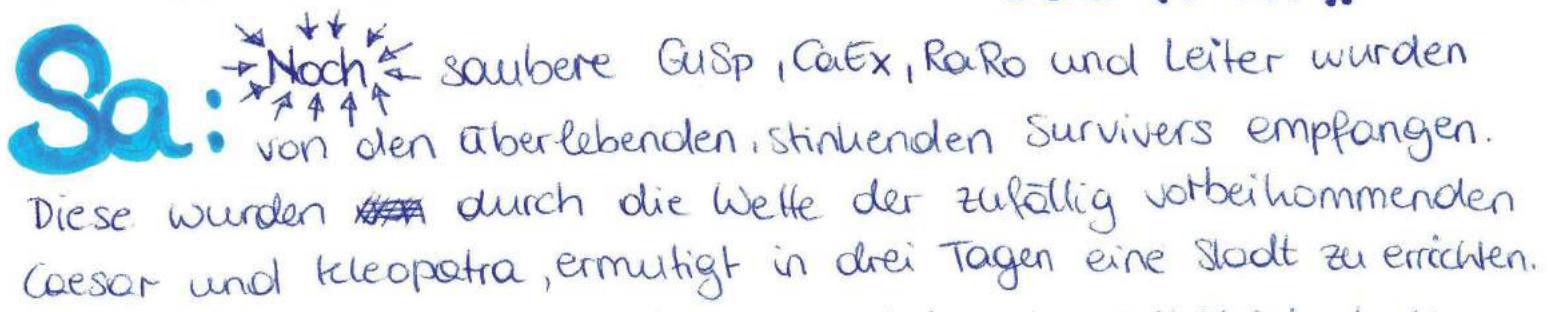 Sa: Noch saubere GuSp, CaEx, RaRo und Leiter wurden
von den überlebenden, stinkenden Survivers empfangen.
Diese wurden durch die Wette der zufällig vorbeikommenden
Caesar und Kleopatra, ermutigt in drei Tagen eine Stadt zu errichten.